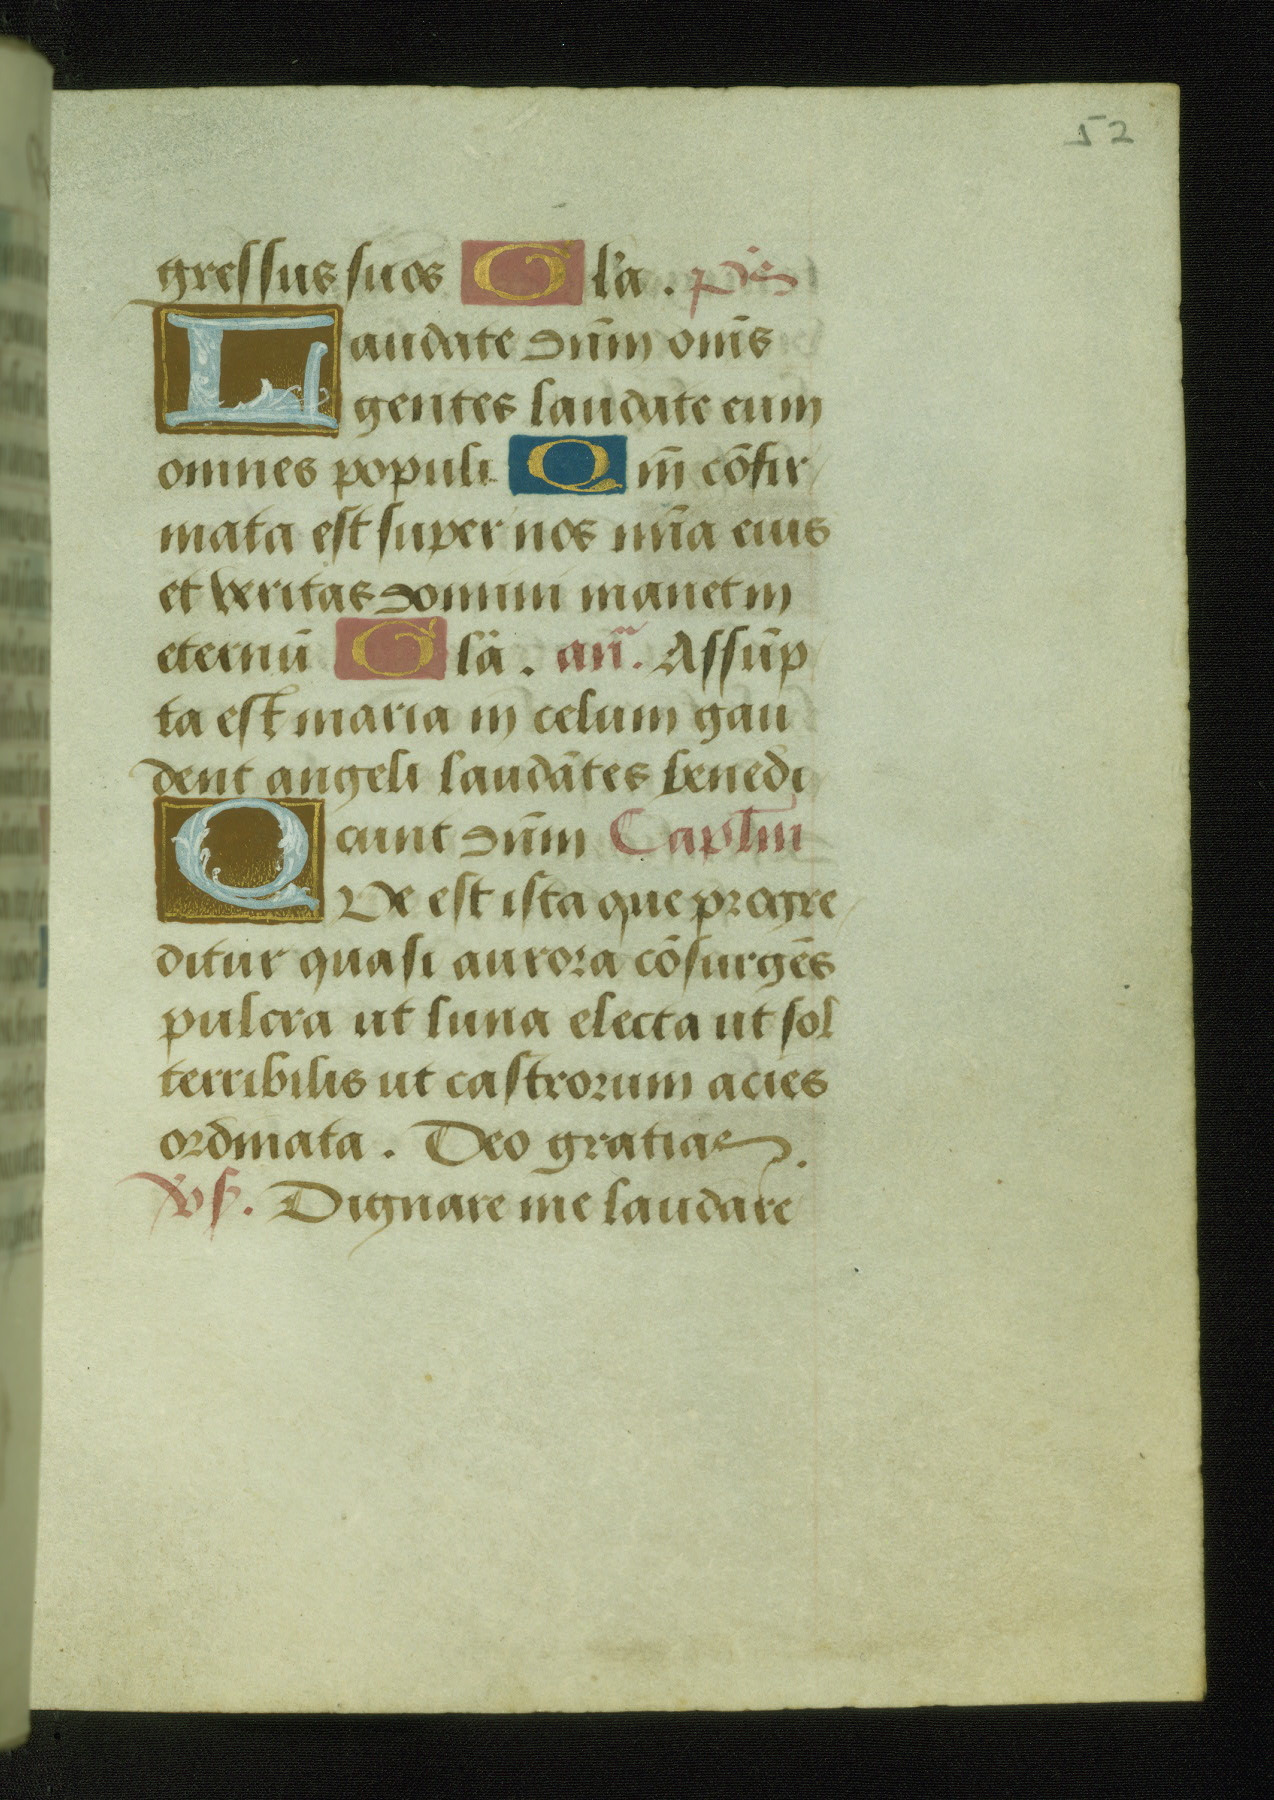 52
gressus suos Gl'a. ps̄
Laudate dn̄m om̄s
gentes laudate eum
omnes populi Qm̄ cōfir
mata est super nos mīa eius
et veritas domini manet in
eternū Gl'a. an̄. Assūp
ta est maria in celum gau
dent angeli laudātes benedi
cunt dn̄m Capl'm
QVe est ista que progre
ditur quasi aurora cōsurgēs
pulcra ut luna electa ut sol
terribilis ut castrorum acies
ordinata. Deo gratias.
Vs. Dignare me laudare